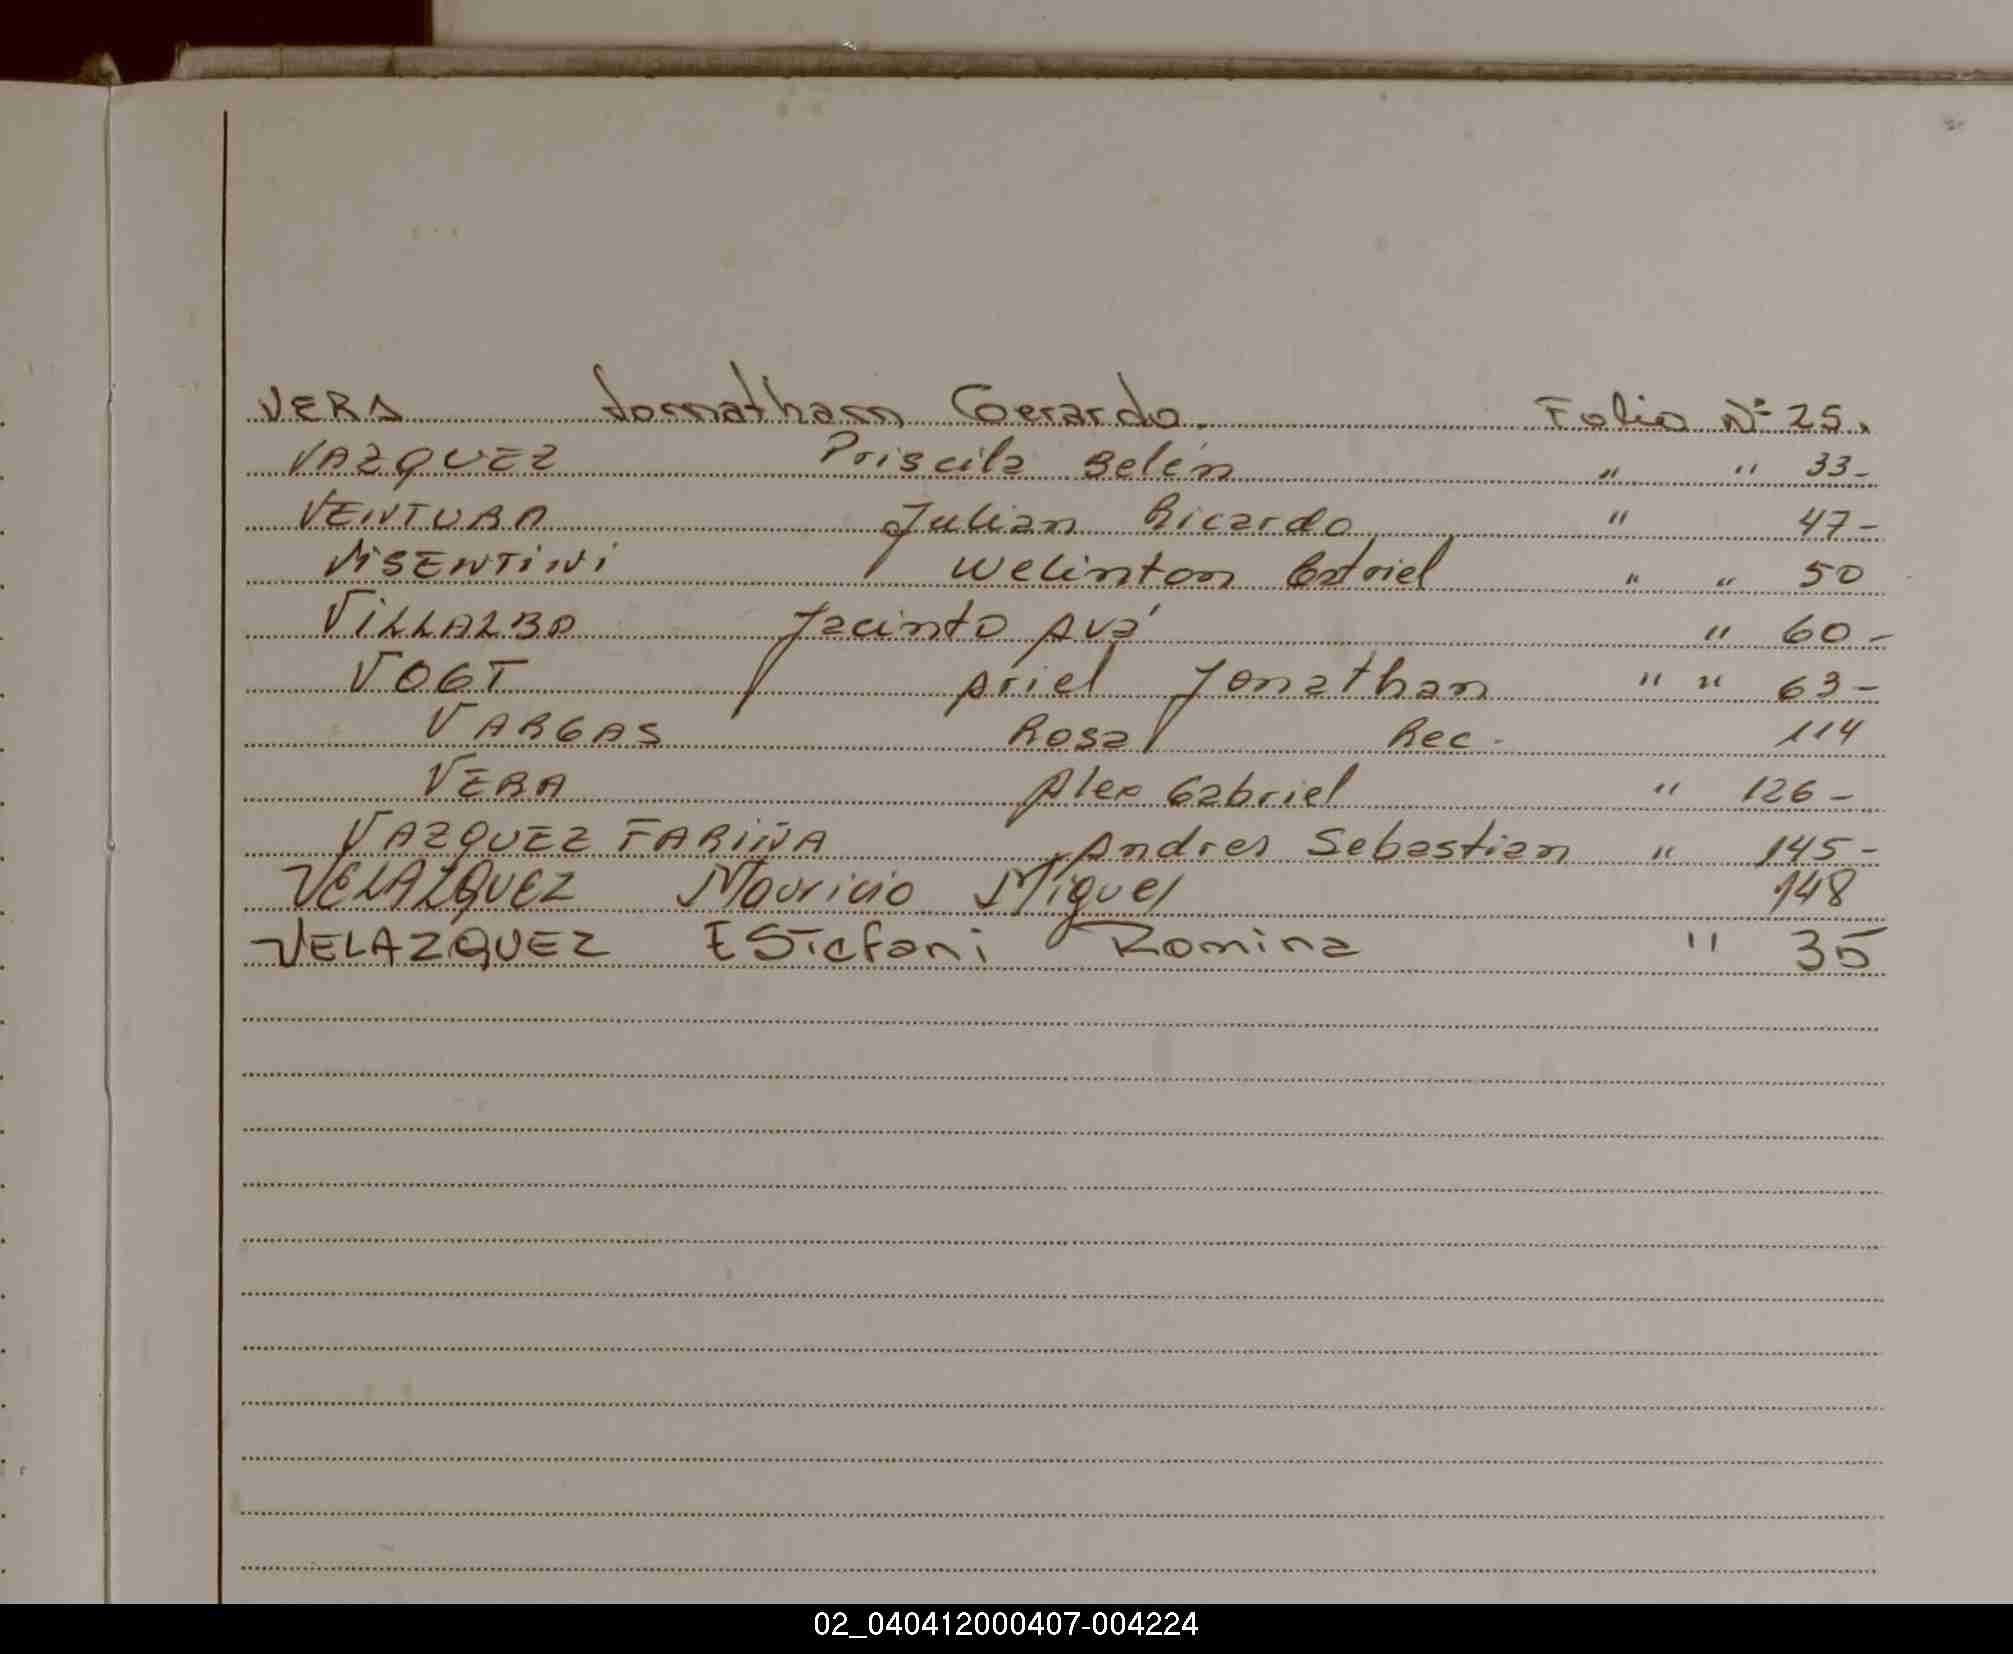 VERA Jonathan Gerardo. Folio Nº 25.
VAZQUEZ Priscila Belén " " 33-
VENTURA Julian Ricardo " 47-
VISENTINI Welinton Gatriel " " 50
VILLALBA Jacinto Avá " 60-
VOGT Ariel Jonathan " " 63-
VARGAS Rosa Rec. 114
VERA Alex Gabriel " 126-
VAZQUEZ FARIÑA Andres Sebastian " 145-
VELAZQUEZ Mauricio Miguel 148
VELAZQUEZ EStefani Romina " 35
02_040412000407-004224